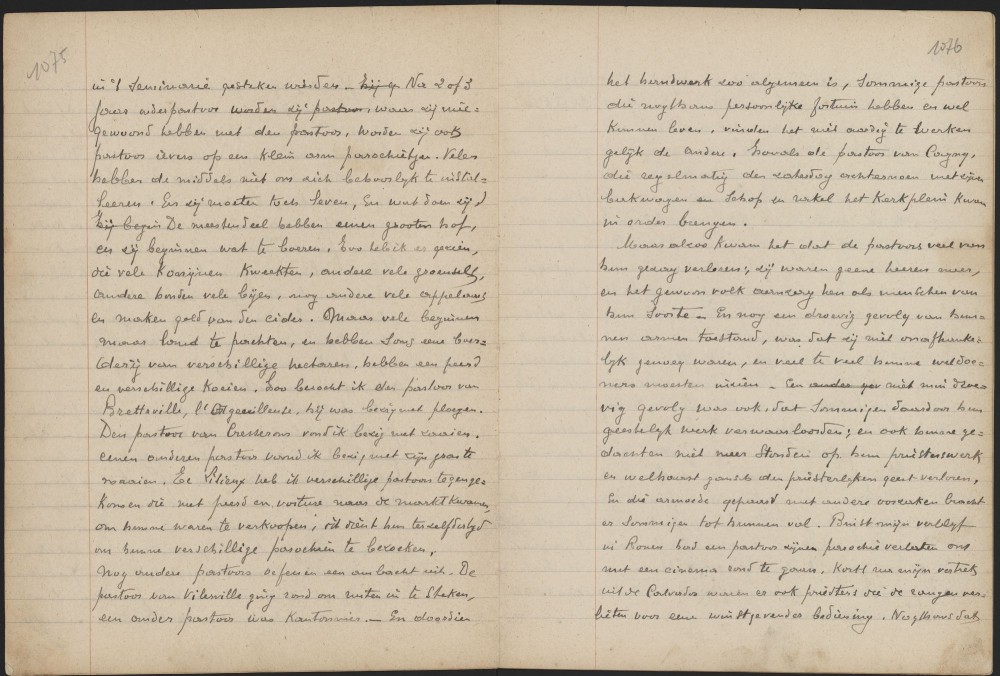 1075
in 't Seminarie gesteken werden – Hij en Na 2 of 3
jaar onderpastoor worden zij pastoor, waar zij mee-
gewoond hebben met den pastoor, worden zij ook
pastoor ievers op een klein arm parochietjen. Velen
hebben de middels niet om zich behoorlijk te instal-
leeren. En zij moeten toch leven, En wat doen zij?
Zij begin De meestendeel hebben eenen grooten hof,
en zij beginnen wat te boeren. Zoo heb ik er gezien,
die vele konijnen kweekten, andere vele groensels,
andere houden vele bijen, nog andere vele appelaars
en maken geld van den cider. Maar vele beginnen
maar land te pachten, en hebben soms eene boer-
derij van verschillige hectaren, hebben een peerd
en verschillige koeien. Zoo bezocht ik den pastoor van
Bretteville, l'Orgueilleuse, hij was bezig met ploegen.
Den pastoor van Cresserons vond ik bezig met zaaien.
eenen anderen pastoor vond ik bezig met zijn gras te
maaien. Te Lisieux heb ik verschillige pastoors tegenge-
komen die met peerd en voiture naar de markt kwamen,
om hunne waren te verkoopen, dit dient hun terzelfdertijd
om hunne verschillige parochien te bezoeken,
Nog andere pastoors oefenen een ambacht uit. De
pastoor van Vilerville ging rond om ruiten in te steken,
een ander pastoor was kantonnier. – En dagedien
1076
het handwerk zoo algemeen is, Sommige pastoors
die nogthans persoonlijke fortuin hebben en wel
kunnen leven, vinden het niet aardig te werken
gelijk de andere. Zooals de pastoor van Cagny,
die regelmatig den zaterdag achternoen met zijn
berkwagen en schop en rakel het Kerkplein kwam
in order brengen.
Maar alzoo kwam het dat de pastoors veel van
hun gezag verloren; zij waren geene heeren meer,
en het gewoon volk aanzag hen als menschen van
hun soorte – En nog een droevig gevolg van hun-
nen armen toestand, was dat zij niet onafhanke-
lijk genoeg waren, en veel te veel hunne weldoe-
ners moesten vieien – Een ander gev niet min droe-
vig gevolg was ook, dat sommigen daardoor hun
geestelijk werk verwaarloosden; en ook hunne ge-
dachten niet meer stonden op hun priesterswerk
en welhaast gansch den priesterlijken geest verloren,
En die armoede gepaard met andere oorzaken bracht
er sommigen tot hunnen val. Binst mijn verblijf
in Rouen had een pastoor zijnen parochie verlaten om
met een cinema rond te gaan. Korts na mijn vertrek
uit de Calvados waren er ook priesters die de rangen ver-
lieten voor eene winstgevender bediening. Nogthans dat